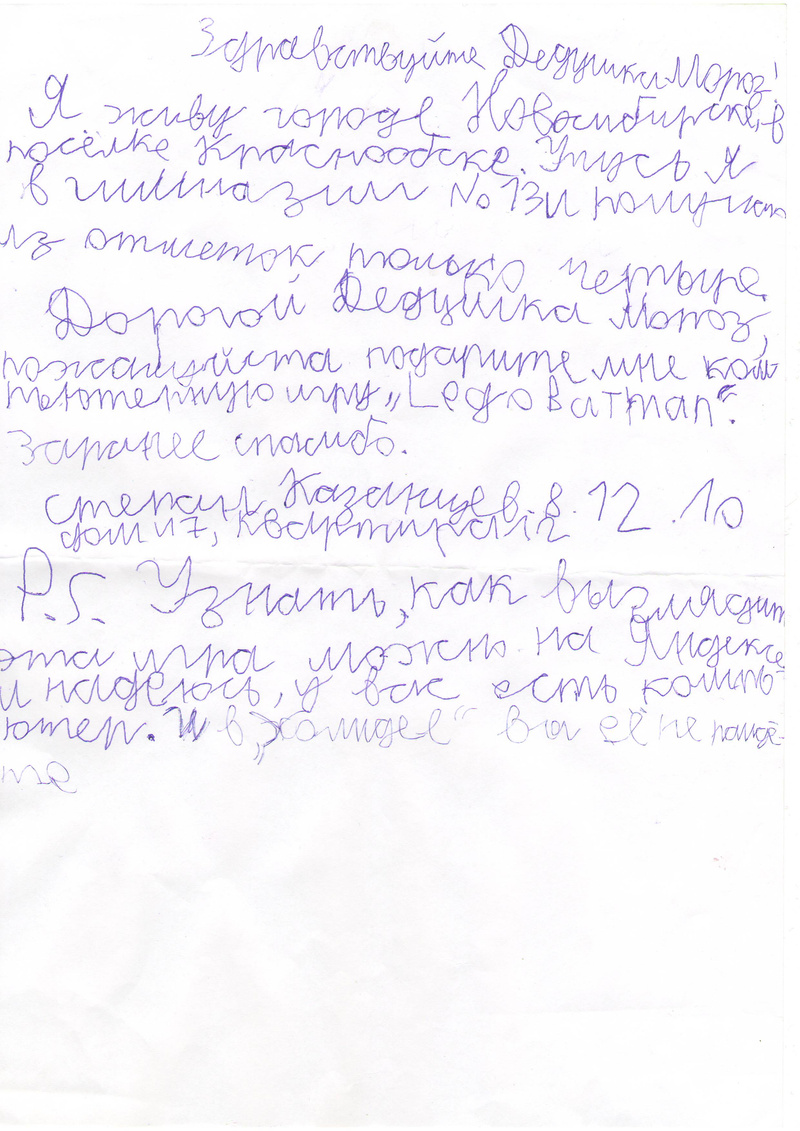 Здравствуйте Дедушка Мороз!
Я живу городе Новосибирске, в
посёлке Краснообске. Учусь я
в гимназии № 13 и получаю
из отметок только четыре.
Дорогой Дедушка Мороз,
пожалуйста подарите мне ком
пьютерную игру „Lego Batman“.
Заранее спасибо.
Степан Казанцев. 8.12.10
дом 17, квартира 12
P.S. Узнать, как выглядит
эта игра можно на Яндексе
и надеюсь, у вас есть компь-
ютер. И в „Холидее“ вы её не найдё-
те